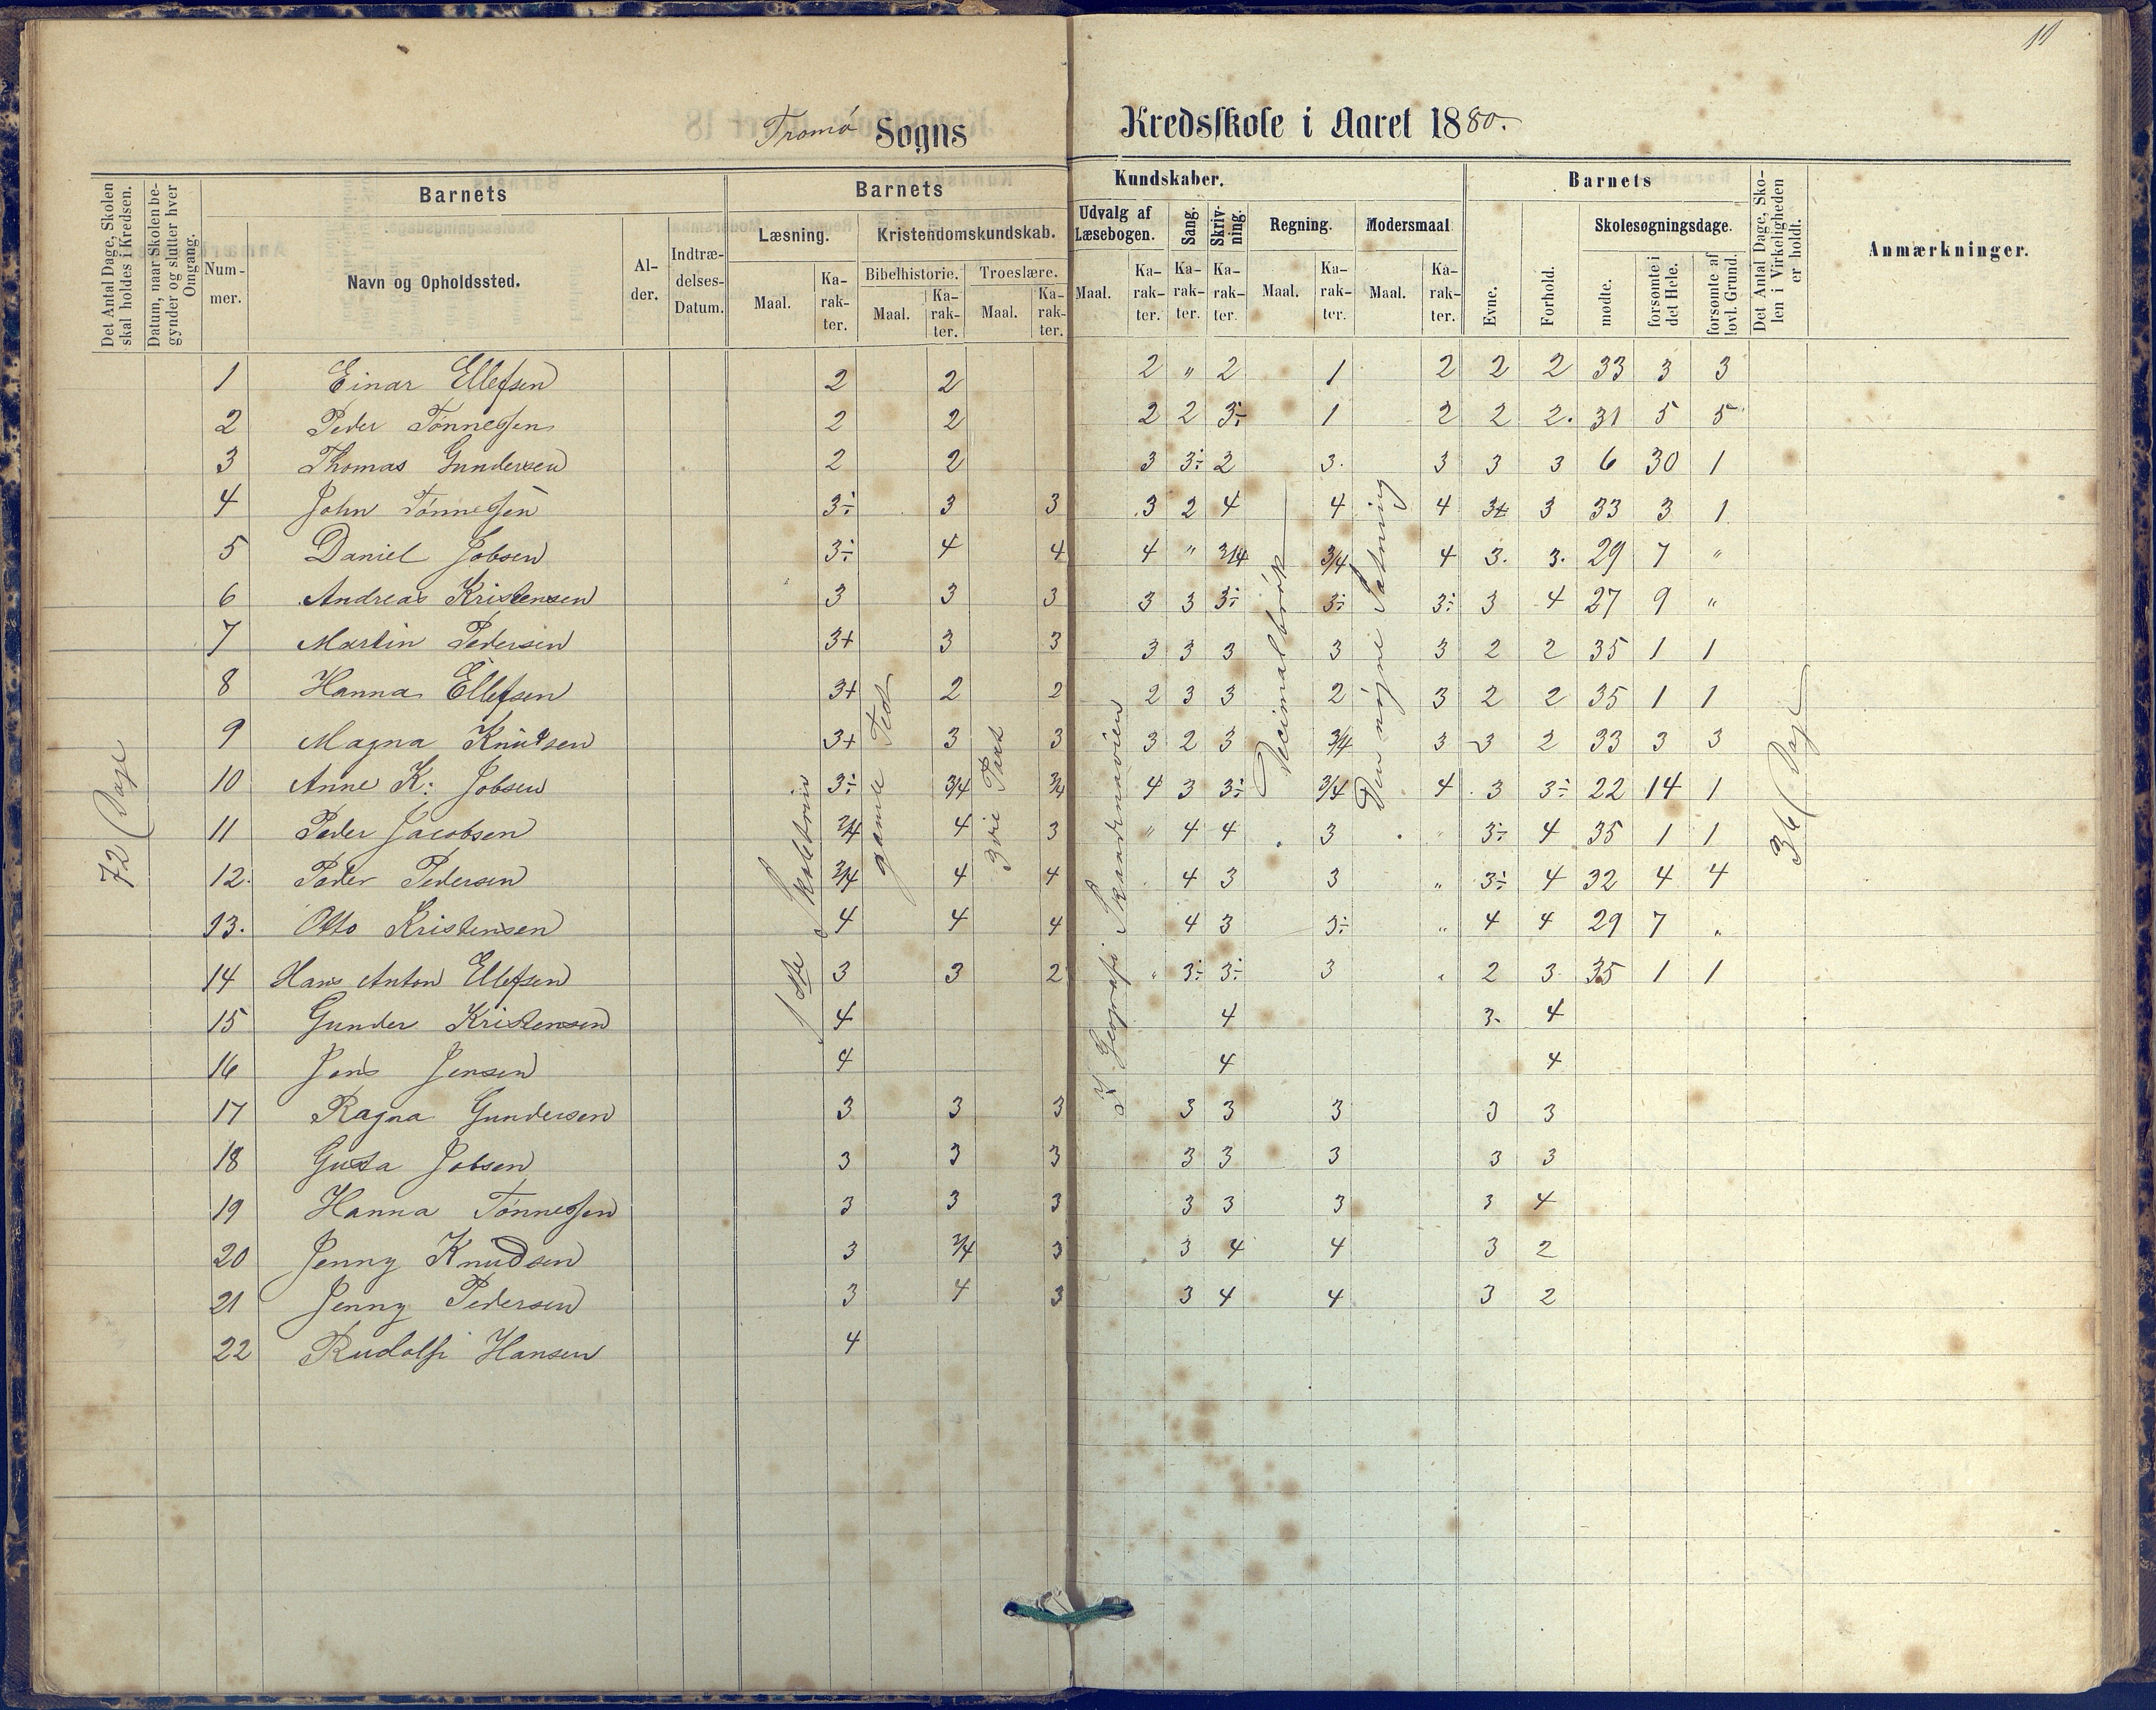 11
Tromø Sogns Kredsskole i Aaret 1880.
Det Antal Dage, Skolen skal holdes i Kredsen.
Datum, naar Skolen begynder og slutter hver Omgang.
Barnets
Nummer.
Navn og Opholdssted.
Alder.
Indtrædelses-Datum.
Barnets Kundskaber.
Læsning.
Maal.
Karakter.
Kristendomskundskab.
Bibelhistorie.
Maal.
Karakter.
Troeslære.
Maal.
Karakter.
Udvalg af Læsebogen.
Maal.
Karakter.
Sang.
Karakter.
Skrivning.
Karakter.
Regning.
Maal.
Karakter.
Modersmaal
Maal.
Karakter.
Barnets
Evne.
Forhold.
Skolesøgningsdage.
mødte.
forsømte i det Hele.
forsømte af lovl. Grund.
Det Antal Dage, Skolen i Virkeligheden er holdt.
Anmærkninger.
1 Einar Ellefsen 2 2 2 " 2 1 2 2 2 33 3 3
2 Peder Tønnessen 2 2 2 2 3÷ 1 2 2 2. 31 5 5
3 Thomas Gundersen 2 2 3 3÷ 2 3. 3 3 3 6 30 1
4 John Tønnessen 3÷ 3 3 3 2 4 4 4 3+ 3 33 3 1
5 Daniel Jobsen 3÷ 4 4 4 " 3/4 3/4 4 3. 3. 29 7 "
6 Andreas Kristensen 3 3 3 3 3 3÷ 3÷ 3÷ 3 4 27 9 "
7 Martin Pedersen 3+ 3 3 3 3 3 3 3 2 2 35 1 1
8 Hanna Ellefsen 3+ 2 2 2 3 3 2 3 2 2 35 1 1
9 Magna Knudsen 3+ 3 3 3 2 3 3/4 3 3 2 33 3 3
10 Anne K: Jobsen 3÷ 3/4 3/4 4 3 3÷ 3/4 4 3 3÷ 22 14 1
11 Peder Jacobsen 3/4 4 3 " 4 4 3 " 3÷ 4 35 1 1
12. Peder Pedersen 3/4 4 4 4 3 3 " 3÷ 4 32 4 4
13. Otto Kristensen 4 4 4 4 3 3÷ " 4 4 29 7 "
14 Hans Anton Ellefsen 3 3 2 " 3÷ 3÷ 3 " 2 3 35 1 1
15 Gunder Kristensen 4 4 3. 4
16 Jens Jensen 4 4 4
17 Ragna Gundersen 3 3 3 3 3 3 3 3
18 Gusta Jobsen 3 3 3 3 3 3 3 3
19 Hanna Tønnessen 3 3 3 3 3 3 3 4
20 Jenny Knudsen 3 3/4 3 3 4 4 3 2
21 Jenny Pedersen 3 4 3 3 4 4 3 2
22 Rudolf Hansen 4
72 Dage
gamle Test
3die Part
Geografi Skandinavien
Decimalbrøk
Den nøgne Sætning
36 Dage